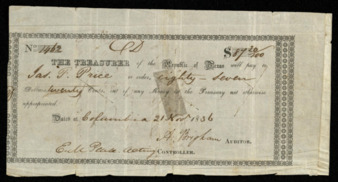 No. 1462 $87 20/100
THE TREASURER of the Republic of Texas will pay to
Jas. T. Price or order, eighty-seven
Dollars twenty Cents, out of any Money in the Treasury not otherwise
appropriated.
Dated Columbia 21 Nov 1836
A. Brigham AUDITOR.
E. M. Pease acting CONTROLLER.